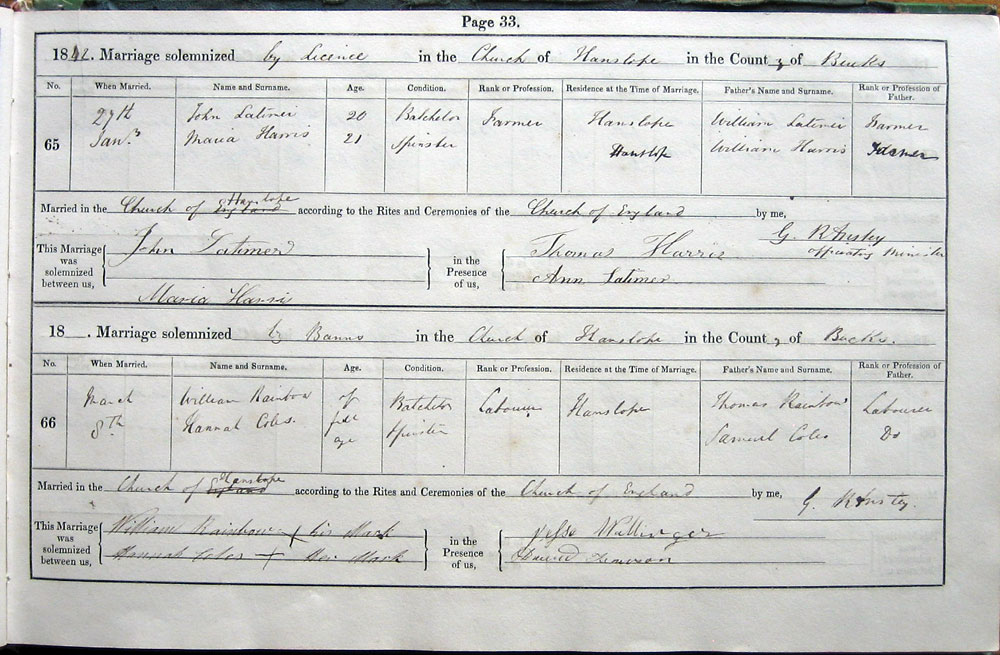 Page 33.
1841. Marriage solemnized by Licence in the Church of Hanslope in the County of Bucks
No. When Married. Name and Surname. Age. Condition. Rank or Profession. Residence at the Time of Marriage. Father's Name and Surname. Rank or Profession of Father.
65 27th John Latimer 20 Batchelor Farmer Hanslope William Latimer Farmer
Jany Maria Harris 21 Spinster Hanslope William Harris Farmer
Married in the Church of England Hanslope according to the Rites and Ceremonies of the Church of England by me,
G. R Ansley
officiating Minister
This Marriage was solemnized between us, John Latimer in the Presence of us, Thomas Harris
Maria Harris Ann Latimer
18 . Marriage solemnized by Banns in the Church of Hanslope in the County of Bucks.
No. When Married. Name and Surname. Age. Condition. Rank or Profession. Residence at the Time of Marriage. Father's Name and Surname. Rank or Profession of Father.
66 March William Rainbow of Batchelor Labourer Hanslope Thomas Rainbow Labourer
8th Hannah Coles. full age Spinster Samuel Coles Do
Married in the Church of England Hanslope according to the Rites and Ceremonies of the Church of England by me, G. R Ansley.
This Marriage was solemnized between us, William Rainbow + his Mark in the Presence of us, Jesse Willinger
Hannah Coles + Her Mark